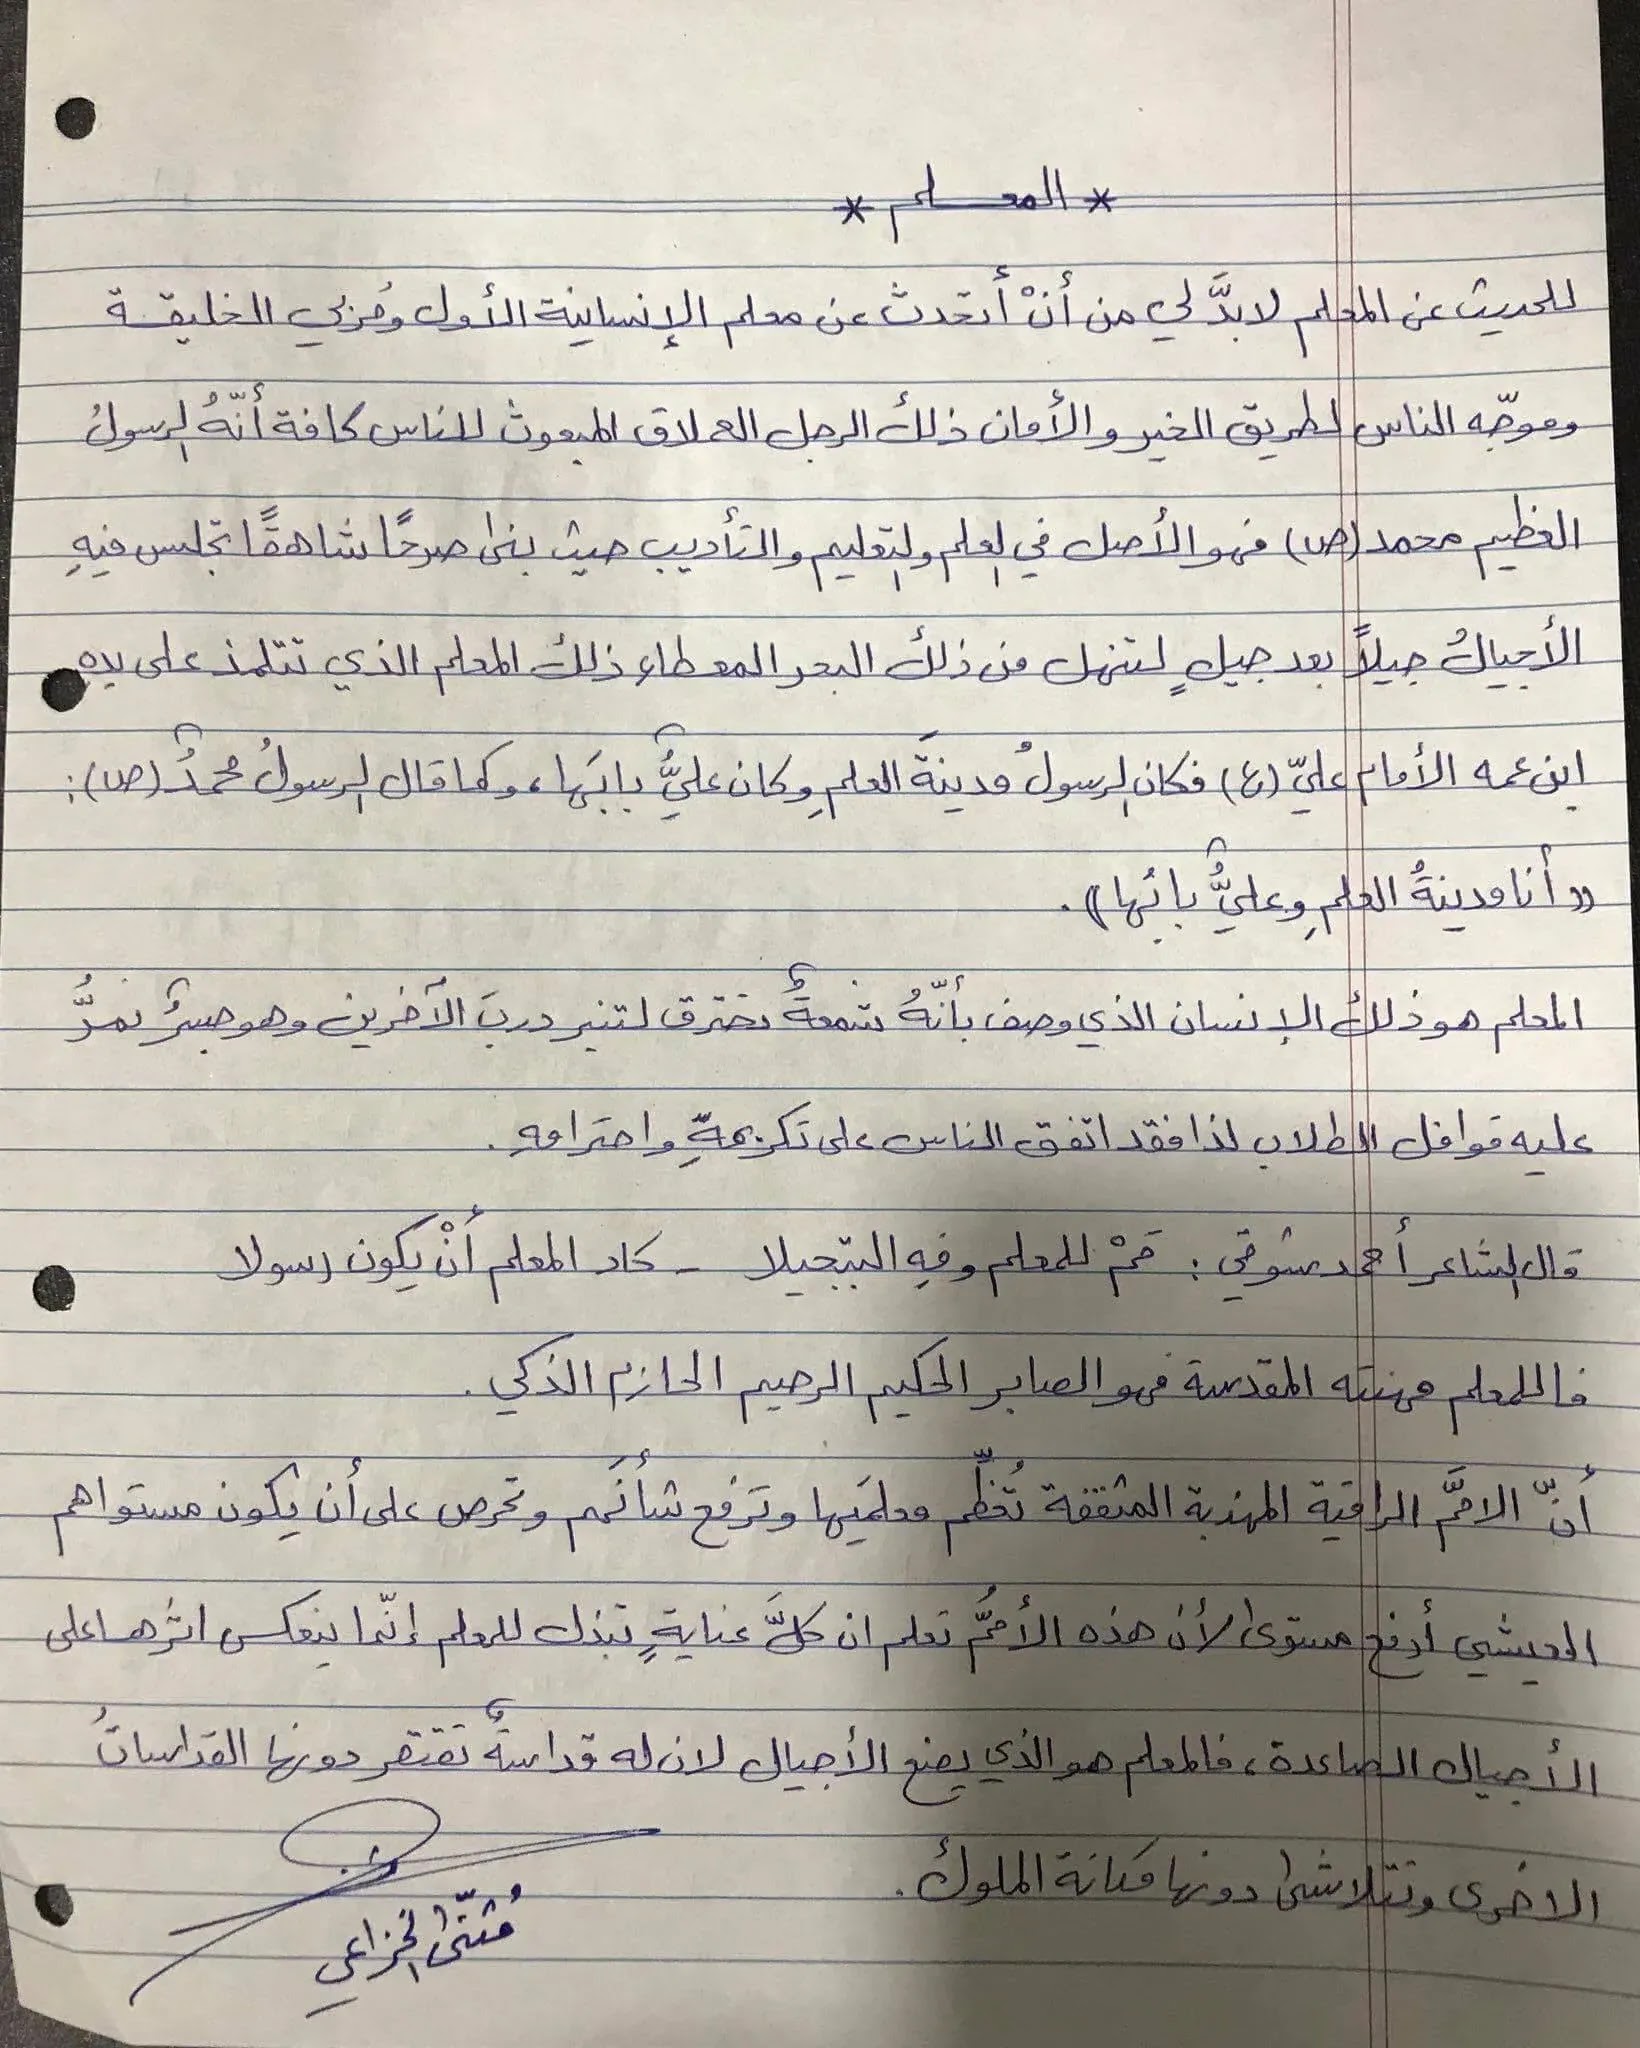 * المعلم *
للحديث عن المعلم لابدَّ لي من أنْ أتحدث عن معلم الإنسانية الأول ومُربي الخليقة
وموجّه الناس لطريق الخير والأمان ذلك الرجل العملاق المبعوث للناس كافة أنّهُ الرسولُ
العظيم محمد (ص) فهو الأصل في العلم والتعليم والتأديب حيث بنى صرحًا شاهقًا تجلس فيهِ
الأجيالُ جيلاً بعد جيلٍ لتنهل من ذلك البحر المعطاء ذلك المعلم الذي تتلمذ على يدهِ
ابن عمه الأمام عليّ (ع) فكان الرسولُ مدينةَ العلمِ وكان عليٌّ بابَها، وكما قال الرسولُ محمدٌ (ص):
((أنا مدينةُ العلمِ وعليٌّ بابُها)).
المعلم هو ذلك الإنسان الذي وصف بأنّهُ شمعةٌ تحترق لتنير دربَ الآخرين وهو جسرٌ تمرُّ
عليه قوافل الطلاب لذا فقد اتفق الناس على تكريمهِ واحترامهِ.
قال الشاعر أحمد شوقي: قمْ للمعلم وفهِ التبجيلا - كاد المعلم أنْ يكون رسولا
فاللمعلم مهنته المقدسة فهو الصابر الحكيم الرحيم الحازم الذكي.
أنّ الاممَّ الراقية المهذبة المثقفة تُعظِّم معلمَيها وترفع شأنَهم وتحرص على أن يكون مستواهم
المعيشي أرفع مستوى لأن هذه الأممُّ تعلم ان كلَّ عنايةٍ تبذل للمعلم إنّما ينعكس اثرها على
الأجيال الصاعدة، فالمعلم هو الذي يصنع الأجيال لان له قداسةٌ تفتقر دونها القداساتُ
الاخرى وتتلاشى دونها مكانة الملوك.
مُثنّى الخزاعي